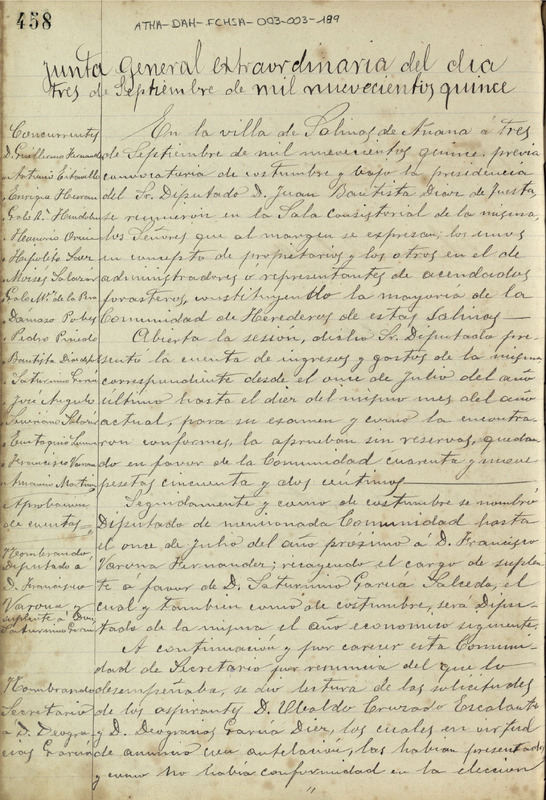 458
ATHA-DAH-FCHSA-003-003-189
Junta General extraordinaria del dia
tres de Septiembre de mil nuevecientos quince
Concurrentes
D. Guillermo
Antonio
Enrique
Honorio
Hipolito
Moises Salazar
Damaso Pobes
Pedro Pinedo
Bautista
Saturnino
José Angulo
Eustaquio
Francisco Varona
Amancio
Aprobacion
de cuentas
Nombrando
Diputado a
D. Francisco
Varona y
suplente a Don
Saturnino Garcia
Nombrando
Secretario
a D. Deogra-
cias Garcia
En la villa de Salinas de Añana á tres
de Septiembre de mil nuevecientos quince, previa
convocatoria de costumbre y bajo la presidencia
del Sr. Diputado D. Juan Bautista Diaz de Tuesta,
se reunieron en la Sala consistorial de la misma,
los Señores que al margen se expresan; los unos
en concepto de propietarios y los otros en el de
administradores o representantes de acendados
forasteros, constituyendo la mayoria de la
Comunidad de Herederos de estas Salinas
Abierta la sesión, dicho Sr. Diputado pre-
sentó la cuenta de ingresos y gastos de la misma
correspondiente desde el once de Julio del año
último hasta el diez del mismo mes del año
actual, para su examen y como la encontra-
ron conforme, la aprueban sin reservas, quedan-
do en favor de la Comunidad cuarenta y nueve
pesetas cincuenta y dos centimos
Seguidamente y como de costumbre se nombró
Diputado de mencionada Comunidad hasta
el once de Julio del año próximo á D. Francisco
Varona Fernandez; recayendo el cargo de suplen-
te a favor de D. Saturnino Garcia Salceda, el
cual y tambien como de costumbre, sera Dipu-
tado de la misma el año economico siguiente.
A continuación y por carecer esta Comuni-
dad de Secretario por renuncia del que lo
desempeñaba, se dio lectura de las solicitudes
de los aspirantes D. Ubaldo Cruzado Escalante
y D. Deogracias Garcia Diez, los cuales en virtud
de anuncio con antelación, las habian presentado
y como no habia conformidad en la elección